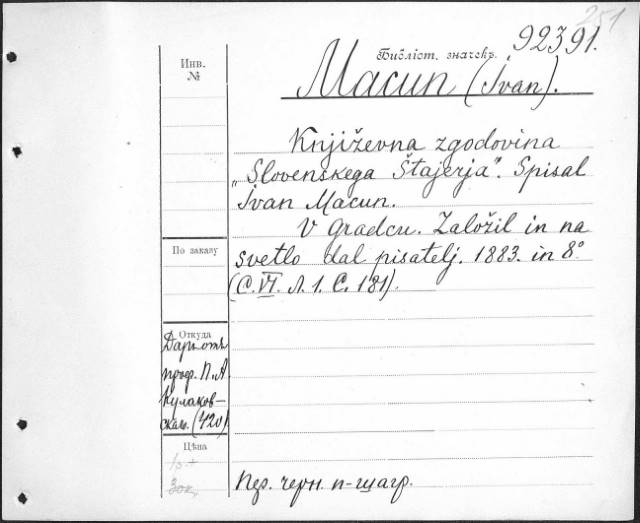 251
Библіот. значекъ.
92391.
Macun (Ivan).
Инв.
№
Književna zgodovina
„Slovenskega Štajerja“. Spisal
Ivan Macun.
V Gradcu. Založil in na
svetlo dal pisatelj. 1883. in 8°
(С. VI. Л. 1. С. 181).
По заказу
Откуда
Даръ отъ
проф. П. А.
Кулаков-
скаго. (420)
Цѣна
Пер. черн. п-шагр.